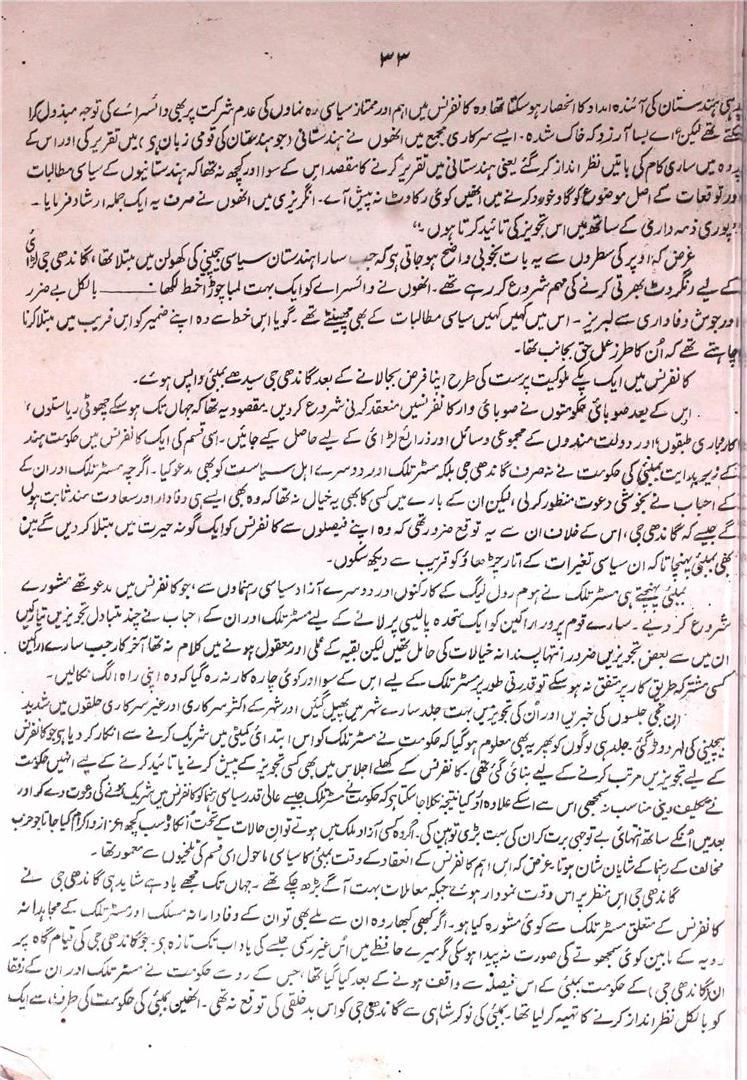 ۳۳
پر ہی ہندستان کی آئندہ امداد کا انحصار ہو سکتا تھا وہ کانفرنس میں اہم اور ممتاز سیاسی رہ نماوں کی عدم شرکت پر بھی وائسراے کی توجہ مبذول کرا
سکتے تھے لیکن اے بسا آرزو کہ خاک شدہ۔ ایسے سرکاری مجمع میں انھوں نے ہندستانی (جو ہندستان کی قومی زبان ہی، میں تقریر کی اور اس کے
پردہ میں ساری کام کی باتیں نظر انداز کر گئے یعنی ہندستانی میں تقریر کرنے کا مقصد اس کے سوا اور کچھ نہ تھا کہ ہندستانیوں کے سیاسی مطالبات
اور توقعات کے اصل موضوع کو گاو خورد کرنے میں انھیں کوئی رکاوٹ نہ پیش آے۔ انگریزی میں انھوں نے صرف یہ ایک جملہ ارشاد فرمایا۔
"پوری ذمہ داری کے ساتھ میں اس تجویز کی تائید کرتا ہوں۔"
غرض کہ اوپر کی سطروں سے یہ بات بخوبی واضح ہو جاتی ہو کہ جب سارا ہندستان سیاسی بیچینی کی کھولن میں مبتلا تھا، گاندھی جی لڑائی
کے لیے رنگروٹ بھرتی کرنے کی مہم شروع کر رہے تھے۔ انھوں نے وائسراے کو ایک بہت لمبا چوڑا خط لکھا ——— بالکل بے ضرر
اور جوش وفاداری سے لبریز۔ اس میں کہیں کہیں سیاسی مطالبات کے بھی چھینٹے تھے۔ گویا اس خط سے وہ اپنے ضمیر کو اس فریب میں مبتلا کرنا
چاہتے تھے کہ اُن کا طرز عمل حق بجانب تھا۔
کانفرنس میں ایک پکے ملوکیت پرست کی طرح اپنا فرض بجا لانے کے بعد گاندھی جی سیدھے بمبئی واپس ہوے۔
اس کے بعد صوبائی حکومتوں نے صوبائی وار کانفرنسیں منعقد کرنی شروع کر دیں۔ مقصود یہ تھا کہ جہاں تک ہو سکے چھوٹی ریاستوں،
کاروباری طبقوں اور دولت مندوں کے مجموعی وسائل اور ذرائع لڑائی کے لیے حاصل کیے جائیں۔ اسی قسم کی ایک کانفرنس میں حکومت ہند
کے زیر ہدایت بمبئی کی حکومت نے نہ صرف گاندھی جی بلکہ مسٹر تلک اور دوسرے اہل سیاست کو بھی مدعو کیا۔ اگرچہ مسٹر تلک اور ان کے
کے احباب نے بخوشی دعوت منظور کر لی، لیکن ان کے بارے میں کسی کا بھی یہ خیال نہ تھا کہ وہ بھی ایسے ہی وفادار اور سعادت مند ثابت ہوں
گے جیسے کہ گاندھی جی، اس کے خلاف ان سے یہ توقع ضرور تھی کہ وہ اپنے فیصلوں سے کانفرنس کو ایک گونہ حیرت میں مبتلا کر دیں گے میں
بھی بمبئی پہنچا تا کہ ان سیاسی تغیرات کے اتار چڑھاؤ کو قریب سے دیکھ سکوں۔
بمبئی پہنچتے ہی مسٹر تلک نے ہوم رول لیگ کے کارکنوں اور دوسرے آزاد سیاسی رہنماوں سے، جو کانفرنس میں مدعو تھے مشورے
شروع کر دیے۔ سارے قوم پرور اراکین کو ایک متحدہ پالیسی پر لانے کے لیے مسٹر تلک اور ان کے احباب نے چند متبادل تجویزیں تیار کیں
ان میں سے بعض تجویزیں ضرور انتہا پسندانہ خیالات کی حامل تھیں لیکن بقیہ کے عملی اور معقول ہونے میں کلام نہ تھا آخر کار جب سارے اراکین
کسی مشترکہ طریق کار پر متفق نہ ہو سکے تو قدرتی طور پر مسٹر تلک کے لیے اس کے سوا اور کوئی چارہ کار نہ رہ گیا کہ وہ اپنی راہ الگ نکالیں۔
ان نجی جلسوں کی خبریں اور اُن کی تجویزیں بہت جلد سارے شہر میں پھیل گئیں اور شہر کے اکثر سرکاری اور غیر سرکاری حلقوں میں شدید
بیچینی کی لہر دوڑ گئی۔ جلد ہی لوگوں کو پھر یہ بھی معلوم ہو گیا کہ حکومت نے مسٹر تلک کو اس ابتدائی کمیٹی میں شریک کرنے سے انکار کر دیا ہی جو کانفرنس
کے لیے تجویزیں مرتب کرنے کے لیے بنائی گئی تھی۔ کانفرنس کے کھلے اجلاس میں بھی کسی تجویز کے پیش کرنے یا تائید کرنے کے لیے انہیں حکومت
نے تکلیف دینی مناسب نہ سمجھی اس سے اسکے علاوہ اور کیا نتیجہ نکالا جا سکتا ہی کہ حکومت نے مسٹر تلک جیسے عالی قدر سیاسی رہنما کو کانفرنس میں شریک ہونے کی دعوت دے کر اور
بعد میں اُنکے ساتھ انتہائی بے توجہی برت کر ان کی سب بڑی توہین کی۔ اگر وہ کسی آزاد ملک میں ہوتے تو ان حالات کے تحت اُن کا وہ سب کچھ اعزاز و اکرام کیا جاتا جو حزب
مخالف کے رہنما کے شایان شان ہوتا، غرض کہ اس اہم کانفرنس کے انعقاد کے وقت بمبئی کا سیاسی ماحول اسی قسم کی تلخیوں سے معمور تھا۔
گاندھی جی اس منظر پر اس وقت نمودار ہوے جبکہ معاملات بہت آگے بڑھ چکے تھے۔ جہاں تک مجھے یاد ہے شاید ہی گاندھی جی نے
کانفرنس کے متعلق مسٹر تلک سے کوئی مشورہ کیا ہو۔ اگر کبھی کبھار وہ ان سے ملے بھی تو ان کے وفادارانہ مسلک اور مسٹر تلک کے مجاہدانہ
رویہ کے مابین کوئی سمجھوتے کی صورت نہ پیدا ہو سکی مگر میرے حافظے میں اُس غیر رسمی جلسے کی یاد اب تک تازہ ہی، جو گاندھی جی کی قیام گاہ پر
ان (گاندھی جی) کے حکومت بمبئی کے اس فیصلہ سے واقف ہونے کے بعد کیا گیا تھا، جس کے رو سے حکومت نے مسٹر تلک اور ان کے رفقا
کو بالکل نظر انداز کرنے کا تہیہ کر لیا تھا۔ بمبئی کی نوکر شاہی سے گاندھی جی کو اس بد خلقی کی توقع نہ تھی۔ انھیں بمبئی کی حکومت کی طرف، سے ایک